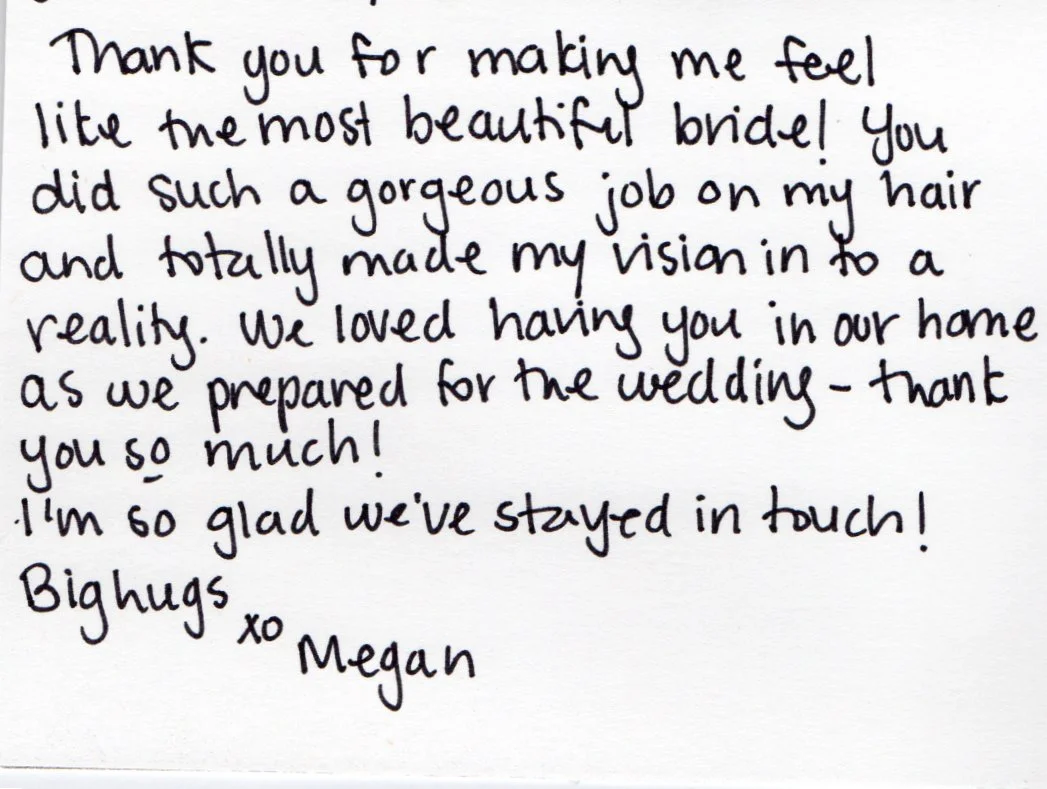 Thank you for making me feel
like the most beautiful bride! You
did such a gorgeous job on my hair
and totally made my vision in to a
reality. We loved having you in our home
as we prepared for the wedding - thank
you so much!
I'm so glad we've stayed in touch!
Big hugs
xo
Megan